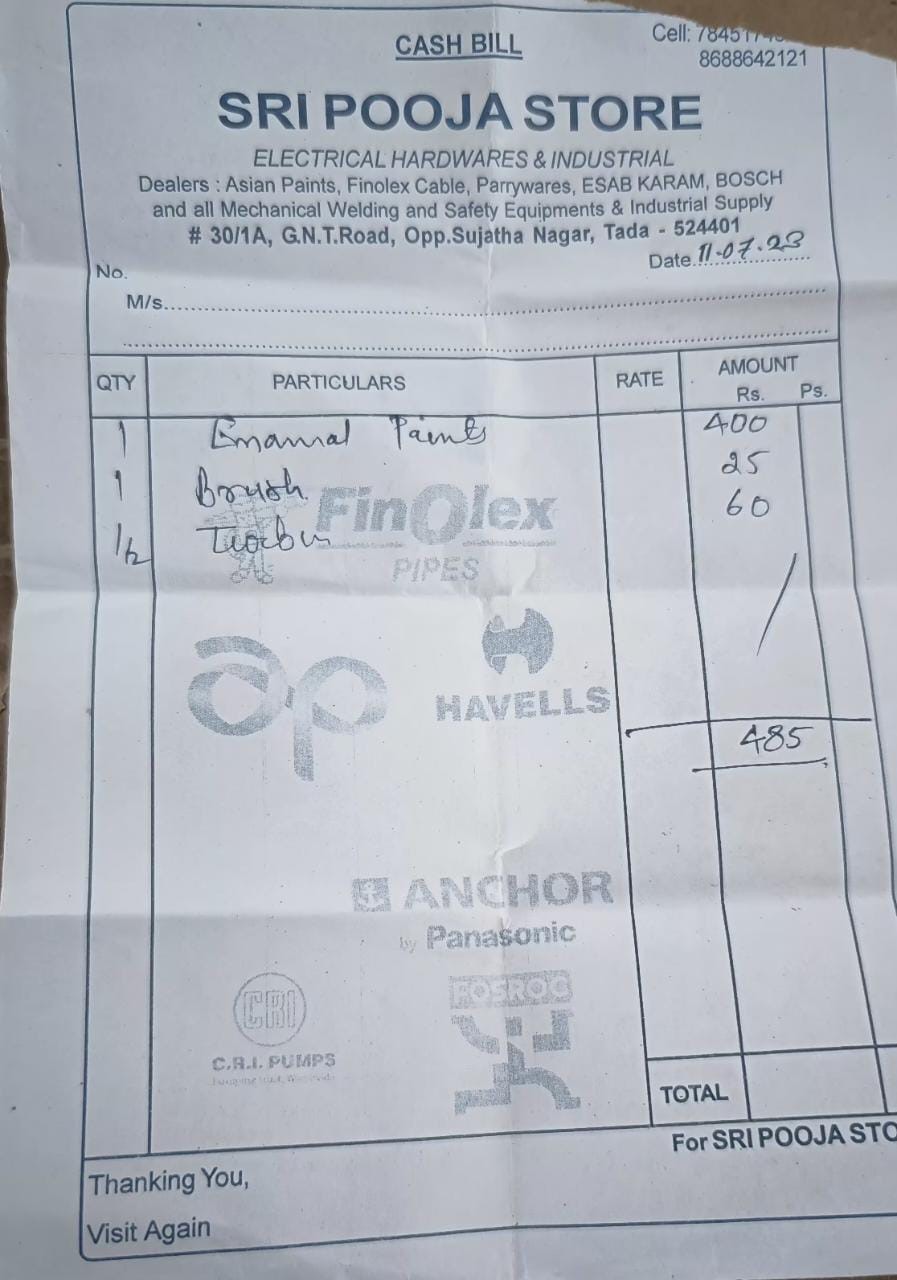 CASH BILL
Cell: 7845174
8688642121
SRI POOJA STORE
ELECTRICAL HARDWARES & INDUSTRIAL
Dealers : Asian Paints, Finolex Cable, Parrywares, ESAB KARAM, BOSCH
and all Mechanical Welding and Safety Equipments & Industrial Supply
# 30/1A, G.N.T.Road, Opp.Sujatha Nagar, Tada - 524401
Date 11-07-23
No.
M/s.
QTY PARTICULARS RATE AMOUNT
Rs. Ps.
1 Enamal Paints 400
1 Brush 25
1/2 60
FinOlex
PIPES
ap
HAVELLS
485
ANCHOR
by Panasonic
CRI
FOSROC
C.R.I. PUMPS
TOTAL
For SRI POOJA STO
Thanking You,
Visit Again